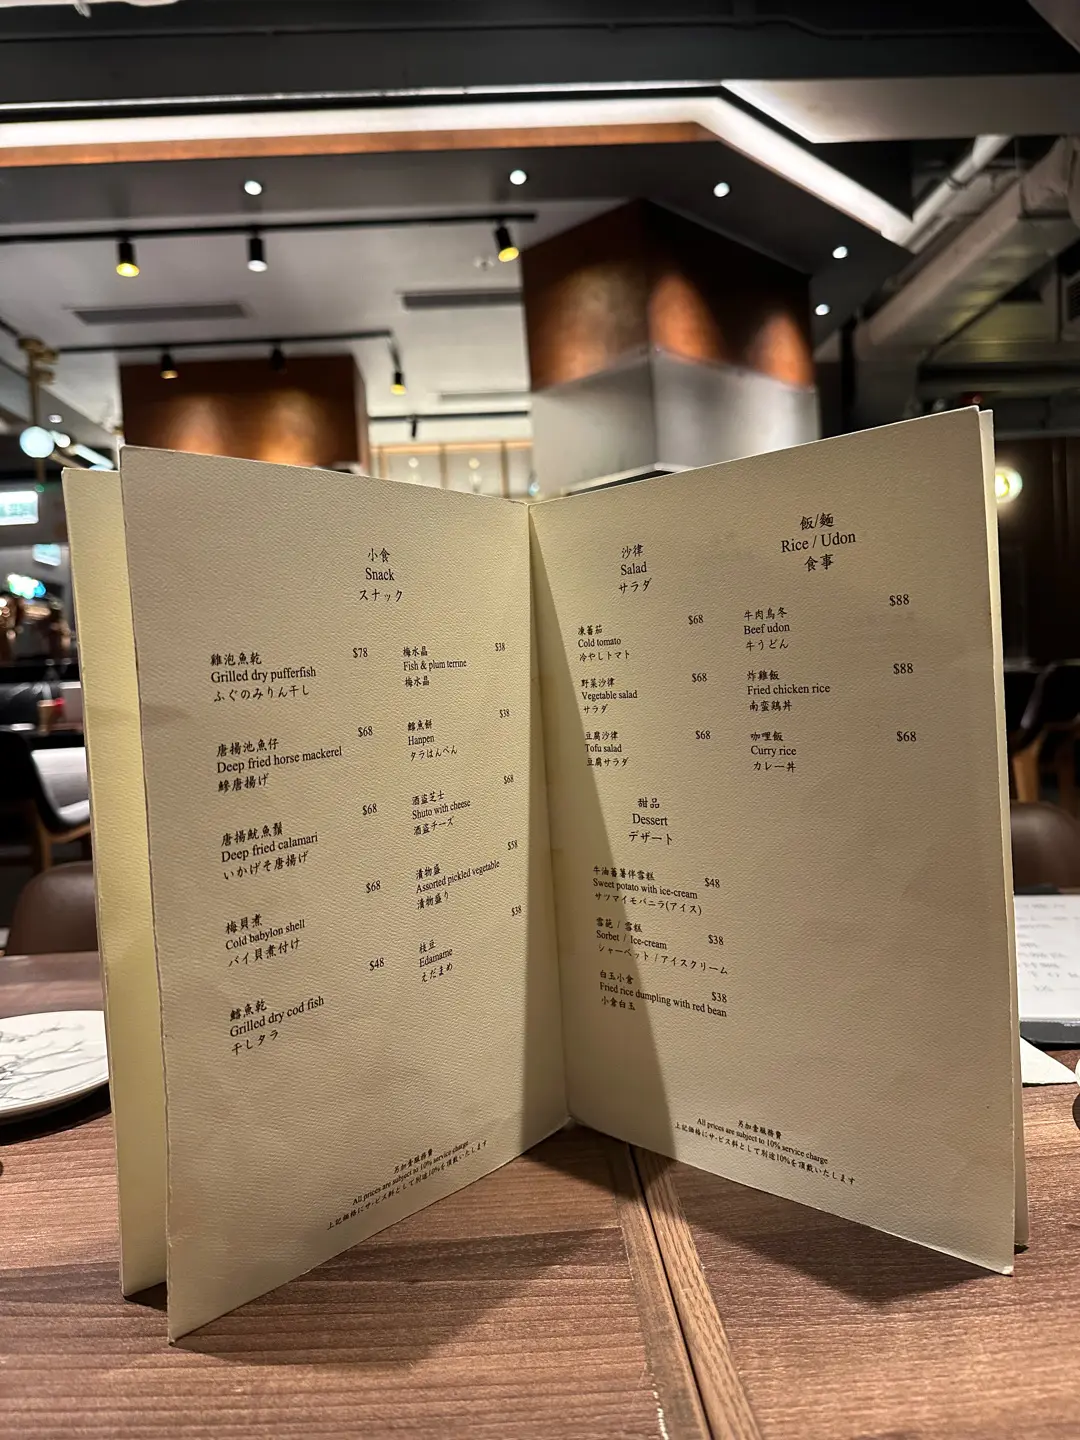 小食
Snack
スナック
雞泡魚乾 $78
Grilled dry pufferfish
ふぐのみりん干し
唐揚池魚仔 $68
Deep fried horse mackerel
鰺唐揚げ
唐揚魷魚鬚 $68
Deep fried calamari
いかげそ唐揚げ
梅貝煮 $68
Cold babylon shell
バイ貝煮付け
鱈魚乾 $48
Grilled dry cod fish
干しタラ
梅水晶 $38
Fish & plum terrine
梅水晶
鱈魚餅 $38
Hanpen
タラはんぺん
酒盗芝士 $68
Shuto with cheese
酒盗チーズ
漬物盛 $58
Assorted pickled vegetable
漬物盛り
枝豆 $38
Edamame
えだまめ
另加壹服務費
All prices are subject to 10% service charge
上記価格にサービス料として別途10%を頂戴いたします
沙律
Salad
サラダ
凍蕃茄 $68
Cold tomato
冷やしトマト
野菜沙律 $68
Vegetable salad
サラダ
豆腐沙律 $68
Tofu salad
豆腐サラダ
甜品
Dessert
デザート
牛油蕃薯伴雪糕
Sweet potato with ice-cream $48
サツマイモバニラ(アイス)
雪葩 / 雪糕
Sorbet / Ice-cream $38
シャーベット / アイスクリーム
白玉小倉
Fried rice dumpling with red bean $38
小倉白玉
飯/麵
Rice / Udon
食事
牛肉烏冬 $88
Beef udon
牛うどん
炸雞飯 $88
Fried chicken rice
南蛮鶏丼
咖哩飯 $68
Curry rice
カレー丼
另加壹服務費
All prices are subject to 10% service charge
上記価格にサービス料として別途10%を頂戴いたします